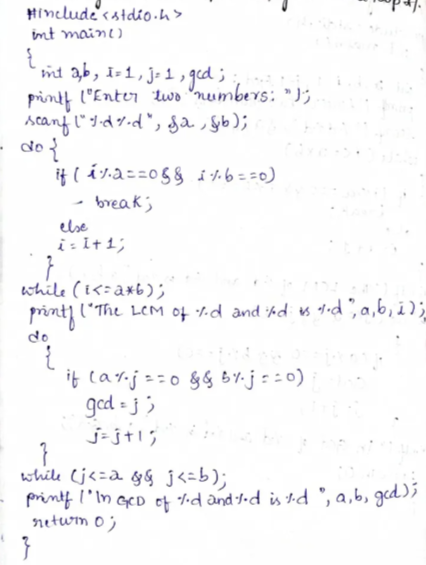 #include <stdio.h>
int main()
{
int a,b, I=1, j=1, gcd;
printf ("Enter two numbers: ");
scanf ("%d%d", &a, &b);
do {
if ( i%a==0 && i%b==0)
- break;
else
i = I+1;
}
while (i<=a*b);
printf ("The LCM of %d and %d is %d", a, b, i);
do
{
if (a%j ==0 && b%j ==0)
gcd = j;
j=j+1;
}
while (j<=a && j<=b);
printf ("\n GCD of %d and %d is %d ", a, b, gcd);
return 0;
}